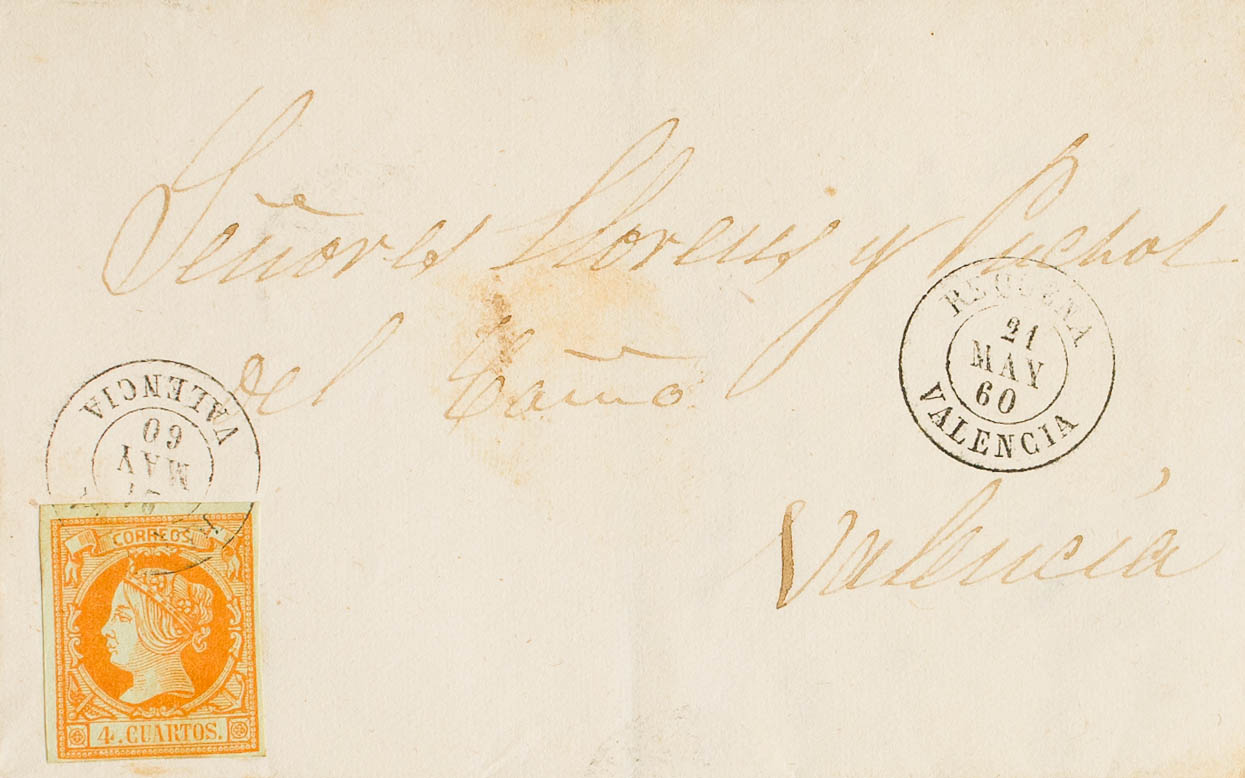 Señores Llorens y Puchol
del Caño
Valencia
REQUENA
21
MAY
60
VALENCIA
VALENCIA
60
MAY
21
CORREOS.
4. CUARTOS.